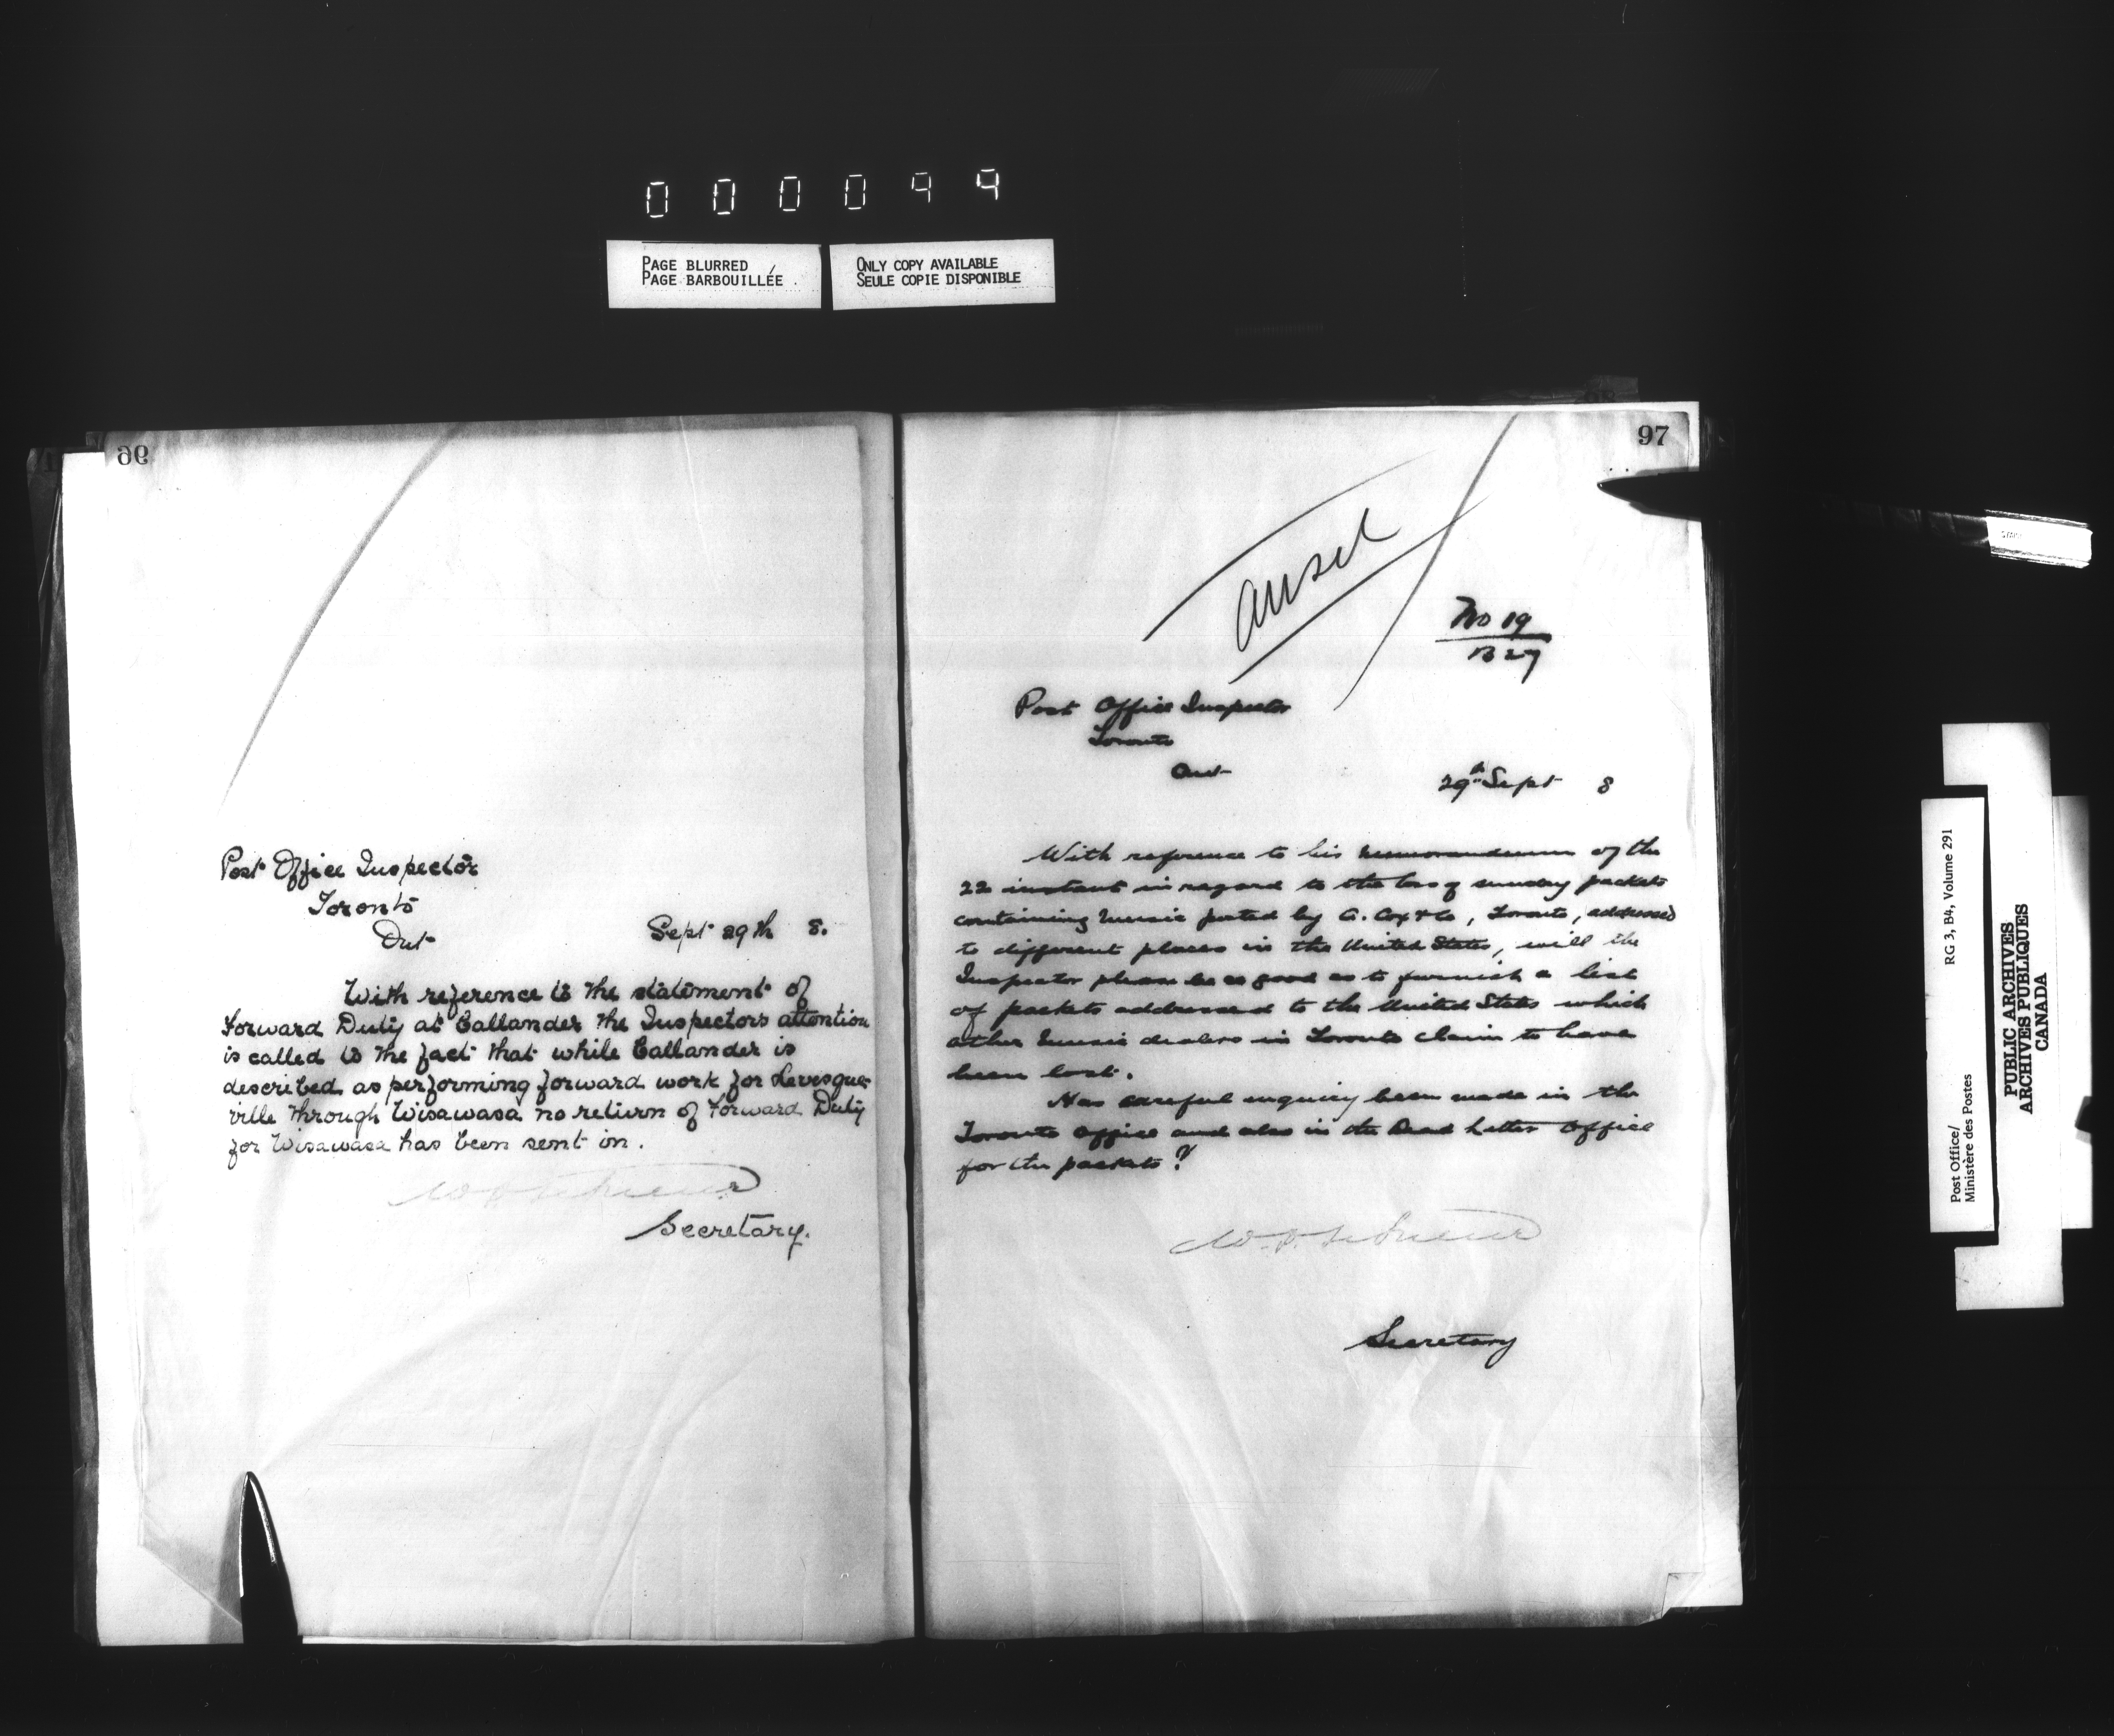 000094
PAGE BLURRED
PAGE BARBOUILLÉE
ONLY COPY AVAILABLE
SEULE COPIE DISPONIBLE
96
Post Office Inspector
Toronto
Ont
Sept 29th 8.
With reference to the statement of
Forward Duty at Callander the Inspectors attention
is called to the fact that while Callander is
described as performing forward work for Levesque-
ville through Wisawasa no return of Forward Duty
for Wisawasa has been sent in.
Secretary.
97
ansd
No 19
B 27
Post Office Inspector
Toronto
Ont
29th Sept 8
With reference to his memorandum of the
22 instant in regard to the loss of sundry packets
containing music posted by A. Cox & Co, Toronto, addressed
to different places in the United States, will the
Inspector please be so good as to furnish a list
of packets addressed to the United States which
other music dealers in Toronto claim to have
been lost.
Has careful inquiry been made in the
Toronto Office and also in the Dead Letter Office
for the packets?
Secretary
RG 3, B4, Volume 291
Post Office/
Ministère des Postes
PUBLIC ARCHIVES
ARCHIVES PUBLIQUES
CANADA